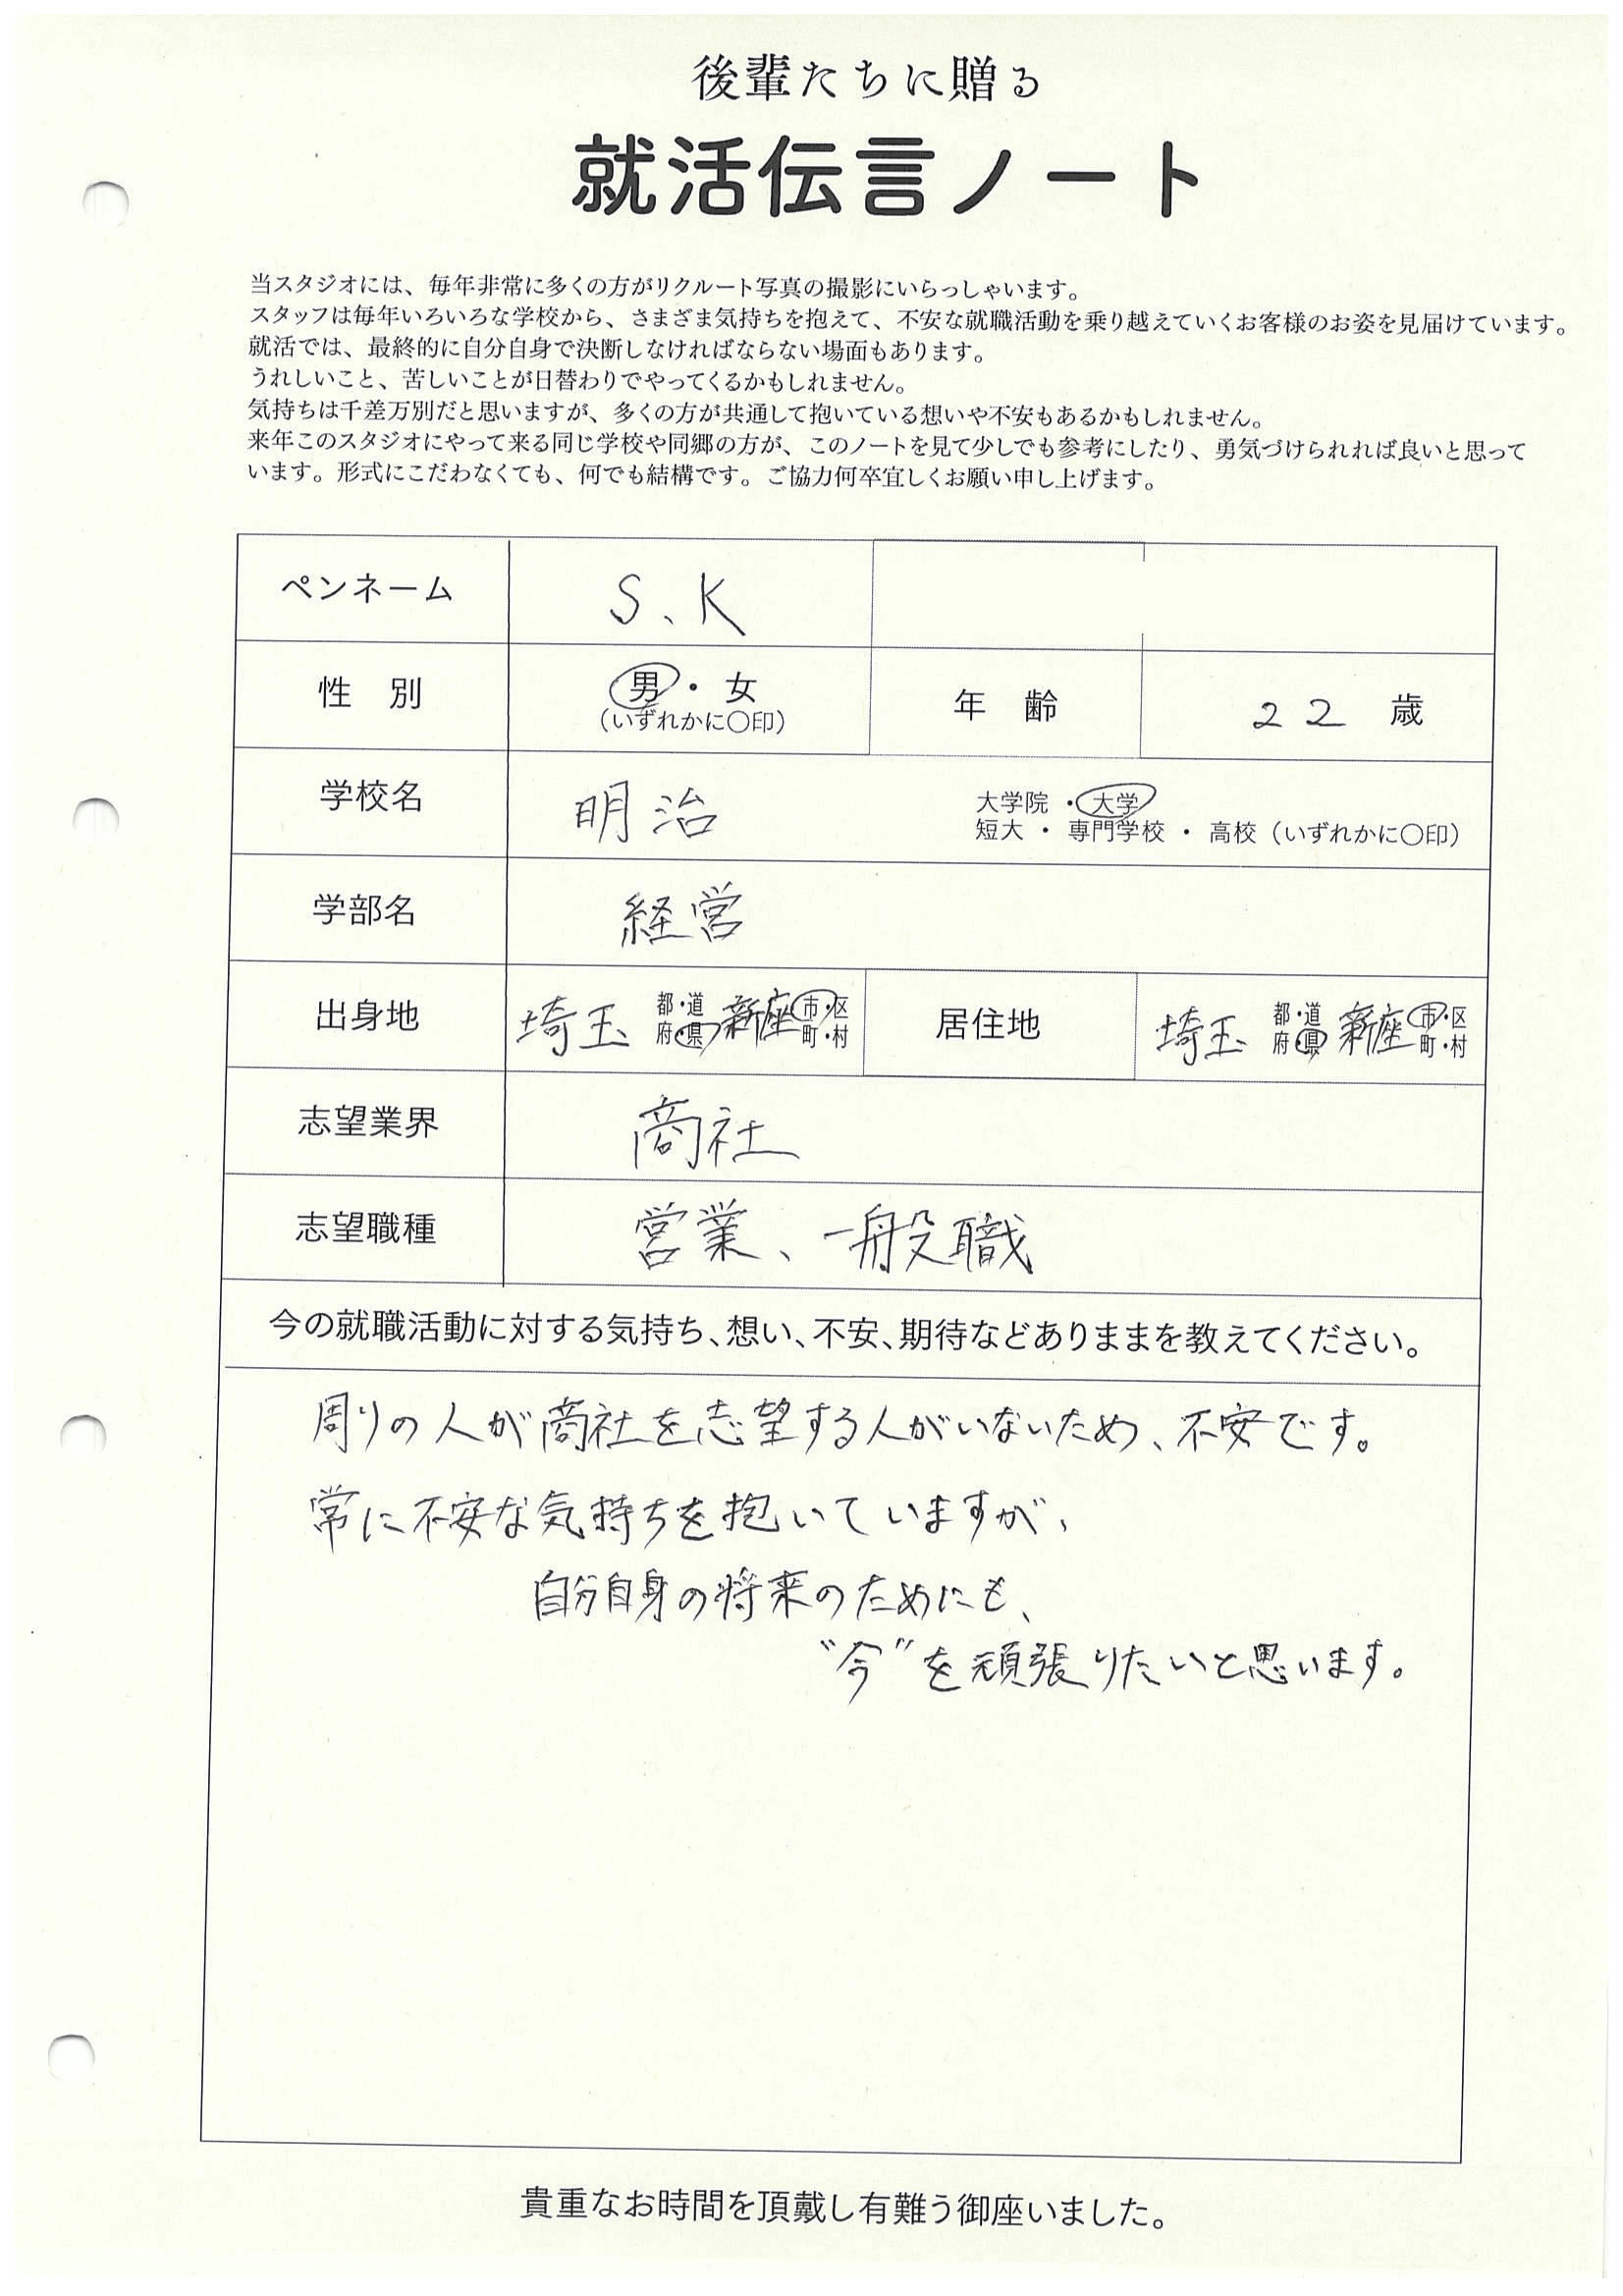 後輩たちに贈る
就活伝言ノート
当スタジオには、毎年非常に多くの方がリクルート写真の撮影にいらっしゃいます。
スタッフは毎年いろいろな学校から、さまざま気持ちを抱えて、不安な就職活動を乗り越えていくお客様のお姿を見届けています。
就活では、最終的に自分自身で決断しなければならない場面もあります。
うれしいこと、苦しいことが日替わりでやってくるかもしれません。
気持ちは千差万別だと思いますが、多くの方が共通して抱いている想いや不安もあるかもしれません。
来年このスタジオにやって来る同じ学校や同郷の方が、このノートを見て少しでも参考にしたり、勇気づけられれば良いと思って
います。形式にこだわなくても、何でも結構です。ご協力何卒宜しくお願い申し上げます。
ペンネーム S、K
性 別 男・女 年 齢 22 歳
(いずれかに〇印)
学校名 明治 大学院・大学
短大・専門学校・高校(いずれかに〇印)
学部名 経営
出身地 埼玉 都・道府・県 新座 市・区町・村 居住地 埼玉 都・道府・県 新座 市・区町・村
志望業界 商社
志望職種 営業、一般職
今の就職活動に対する気持ち、想い、不安、期待などありままを教えてください。
周りの人が商社を志望する人がいないため、不安です。
常に不安な気持ちを抱いていますが、
自分自身の将来のためにも、
“今”を頑張りたいと思います。
貴重なお時間を頂戴し有難う御座いました。